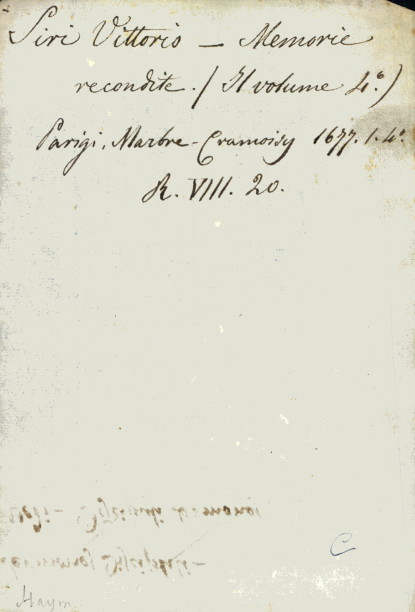 Siri Vittorio — Memorie
recondite. / Il volume 4.°)
Parigi, Marbre-Cramoisy 1677. 1. 4.°
R. VIII. 20.
C
Haym